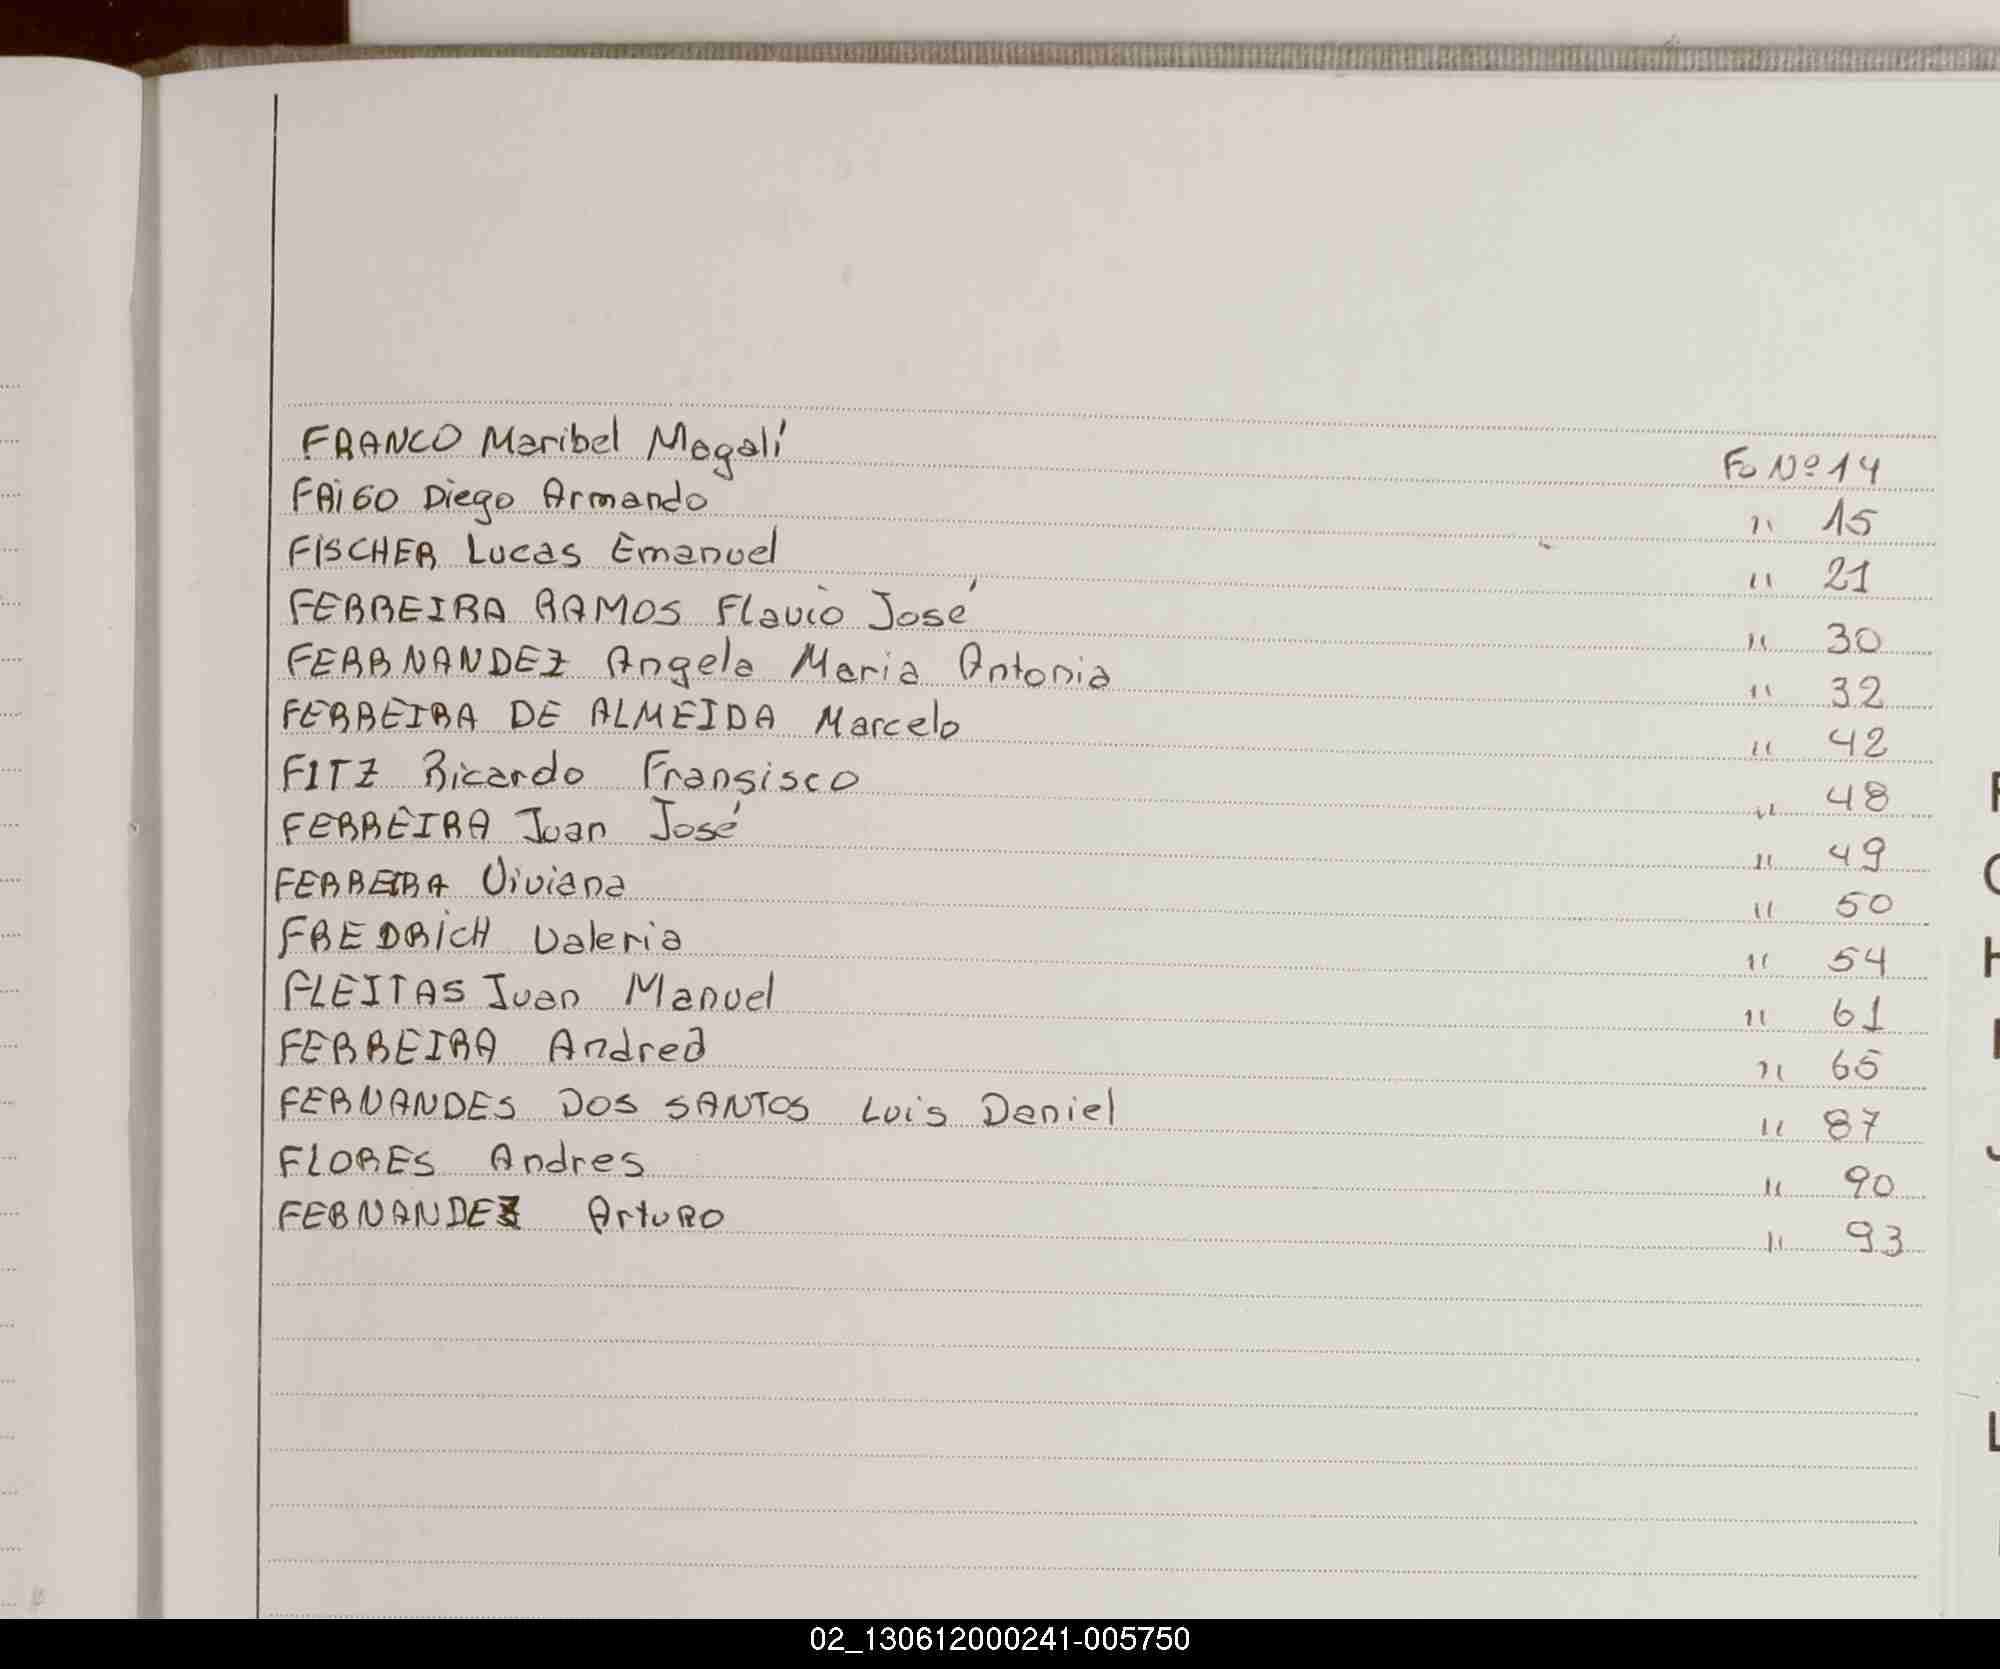 FRANCO Maribel Magalí Fo Nº 14
FAiGO Diego Armando " 15
FISCHER Lucas Emanuel " 21
FERREIRA RAMOS Flavio José " 30
FERRNANDEZ Angela Maria Antonia " 32
FERREIRA DE ALMEIDA Marcelo " 42
FITZ Ricardo Fransisco " 48
FERREIRA Juan José " 49
FERREIRA Viviana " 50
FREDRiCH Valeria " 54
FLEITAS Juan Manuel " 61
FERREIRA Andrea " 65
FERNANDES DOS SANTOS Luis Daniel " 87
FLORES Andres " 90
FERNANDEZ Arturo " 93
02_130612000241-005750